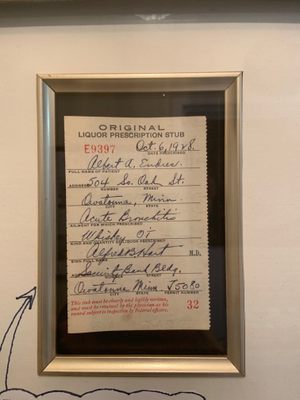 ORIGINAL
LIQUOR PRESCRIPTION STUB
E9397 Oct. 6, 1928.
DATE PRESCRIBED
Albert A. Endres
FULL NAME OF PATIENT
504 So. Oak St.
ADDRESS NUMBER STREET
Owatonna, Minn
CITY STATE
Acute Bronchitis
AILMENT FOR WHICH PRESCRIBED
Whiskey
KIND AND QUANTITY OF LIQUOR PRESCRIBED
Alfred B. Hart M.D.
SIGN FULL NAME
Security Bank Bldg.
ADDRESS NUMBER STREET
Owatonna Minn J5080
CITY STATE PERMIT NUMBER
This stub must be clearly and legibly written,
and must be retained by the physician as his
record subject to inspection by Federal officers.
32